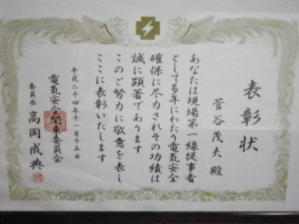 表彰状
菅谷茂夫殿
あなたは現場第一線従事者
として多年にわたり電気安全
確保に尽力されその功績は
誠に顕著であります
このご努力に敬意を表し
ここに表彰いたします
平成二十四年十一月十五日
電気安全関東委員会
委員長 高岡成典